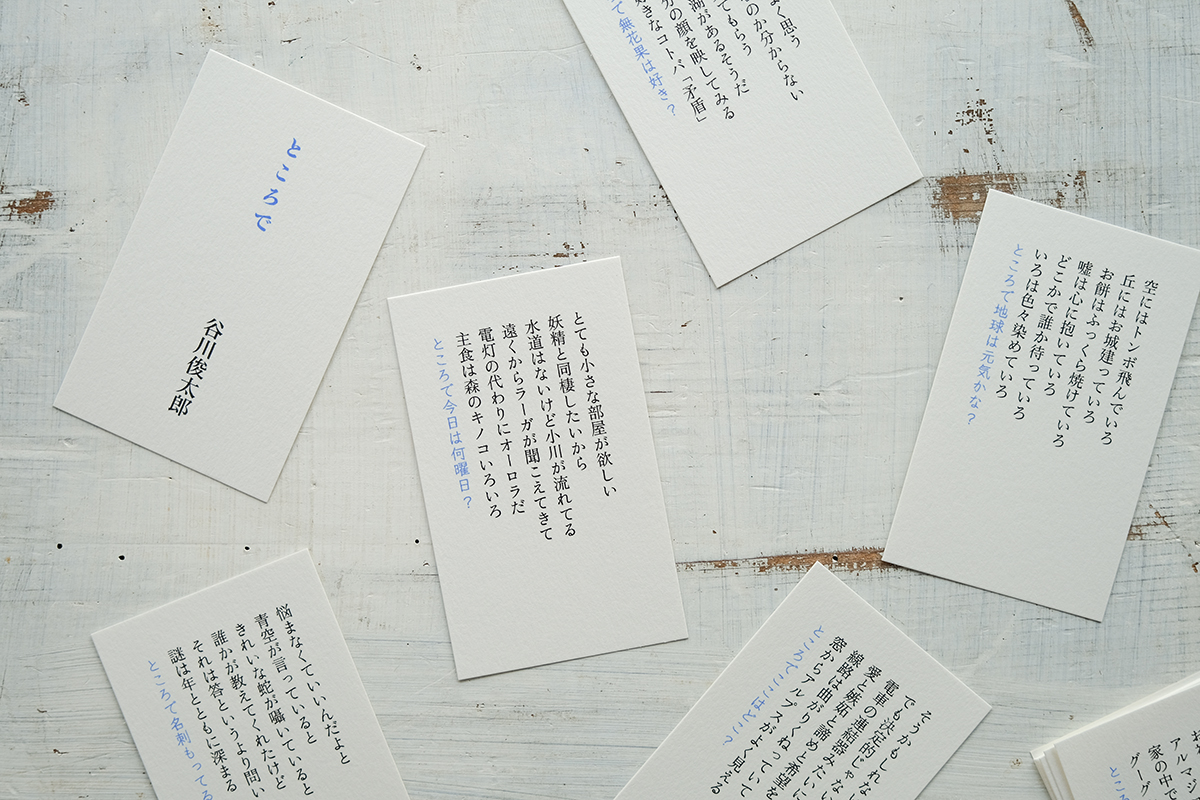 ところで
谷川俊太郎
よく思う
のか分からない
てもらう
湖があるそうだ
分の顔を映してみる
好きなコトバ「矛盾」
て無花果は好き？
空にはトンボ飛んでいる
丘にはお城建っている
お餅はふっくら焼けている
嘘は心に抱いている
どこかで誰か待っている
いろは色々染めている
ところで地球は元気かな？
とても小さな部屋が欲しい
妖精と同棲したいから
水道はないけど小川が流れてる
遠くからラーガが聞こえてきて
電灯の代わりにオーロラだ
主食は森のキノコいろいろ
ところで今日は何曜日？
悩まなくていいんだよと
青空が言っていると
きれいな蛇が囁いていると
誰かが教えてくれたけど
それは答というより問い
謎は年とともに深まる
ところで名刺もってる
そうかもしれな
でも決定的じゃない
電車の連結器みたいに
愛と嫉妬と諦めと希望を
線路は曲がりくねっていて
窓からアルプスがよく見える
ところでここはどこ？
アルマジ
家の中で
グーグ
ところ